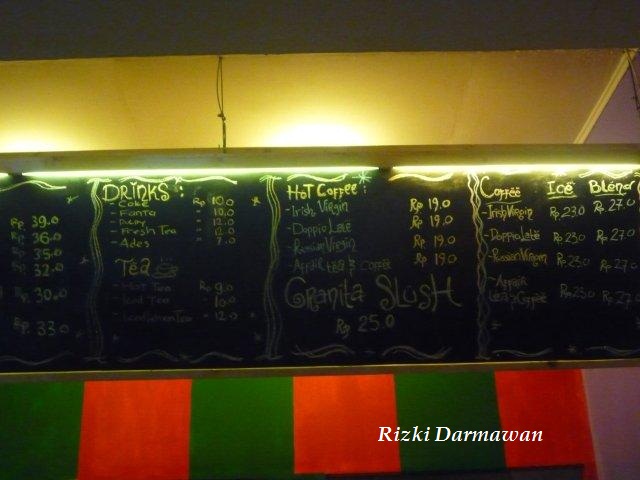 Rp. 39.0
Rp. 36.0
Rp. 35.0
Rp. 32.0
Rp. 30.0
Rp. 33.0
DRINKS :
- Coke Rp 10.0
- Fanta " 10.0
" 12.0
- Fresh Tea " 12.0
- Ades " 7.0
Tea
- Hot Tea Rp 9.0
- Iced Tea " 10.0
- Iced Lemon Tea " 12.0
HOT COFFEE :
- Irish Virgin Rp 19.0
- Doppio Late Rp 19.0
- Russian Virgin Rp 19.0
- Affair tea & Coffee Rp 19.0
Granita SLusH
Rp 25.0
Coffee Ice Blend
- Irish Virgin Rp 23.0 Rp 27.0
- Doppio Late Rp 23.0 Rp 27.0
- Russian Virgin Rp 23.0 Rp 27.0
- Affair
tea & Coffee Rp 23.0 Rp 27.0
Rizki Darmawan